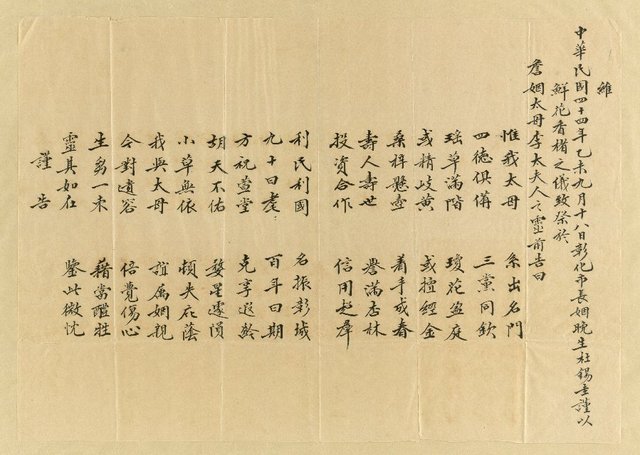 維
中華民國四十四年乙未九月十八日彰化市長姻晚生杜錫圭謹以
鮮花香楮之儀致祭於
詹姻太母李太夫人之靈前告曰
惟我太母 系出名門
四德俱備 三黨同欽
瑤草滿階 瓊花盈庭
或精岐黃 或擅經金
桑梓懸壺 着手成春
壽人壽世 譽滿杏林
投資合作 信用超羣
利民利國 名振彰城
九十曰耄 百年曰期
方祝萱堂 克享遐齡
胡天不佑 婺星遽隕
小草無依 頓失庇蔭
我與太母 誼属姻親
今對遺容 倍覺傷心
生芻一束 藉當醴牲
靈其如在 鑒此微忱
謹告